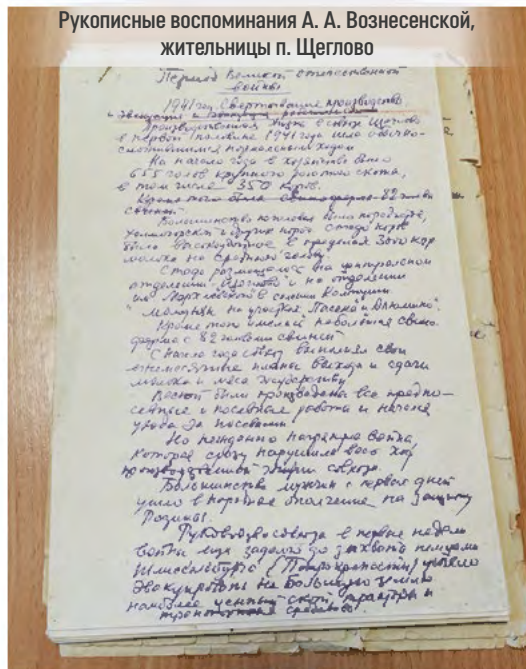 Рукописные воспоминания А. А. Вознесенской,
жительницы п. Щеглово
Период Великой отечественной
войны
1941 год. Свертывание производства
Производственная жизнь совхоза Щеглово
в первой половине 1941 года шла обычно-
сложившимся нормальным ходом
На начало года в хозяйстве было
655 голов крупного рогатого скота,
в том числе 350 коров.
Кроме того была свиноферма - 82 головы
свиней.
Большинство поголовья было породистое,
холмогорской и других пород. Стадо коров
было высокоудойное в пределах 3000 кгр
молока на среднего голову.
Стадо размещалось на центральном
отделении "Щеглово" и на отделении
в селении Колтуши
"молодняк на участках Пасека и Дылюмино".
Кроме того имелась небольшая свино-
ферма с 82 головами свиней
С начала года совхоз выполнял свои
ежемесячные планы выхода и сдачи
молока и мяса государству
Весной были произведены все предпо-
севные и посевная работа и начался
уход за посевами
Но нежданно нагрянула война,
которая сразу нарушила весь ход
производственной жизни совхоза.
Большинство мужчин с первых дней
ушло в народное ополчение на защиту
Родины.
Руководство совхоза в первые недели
войны еще задолго до захвата немцами
Шлиссельбурга (Петрокрепость) успело
эвакуировать на Большую землю
наиболее ценный скот, тракторы и
транспортные средства.